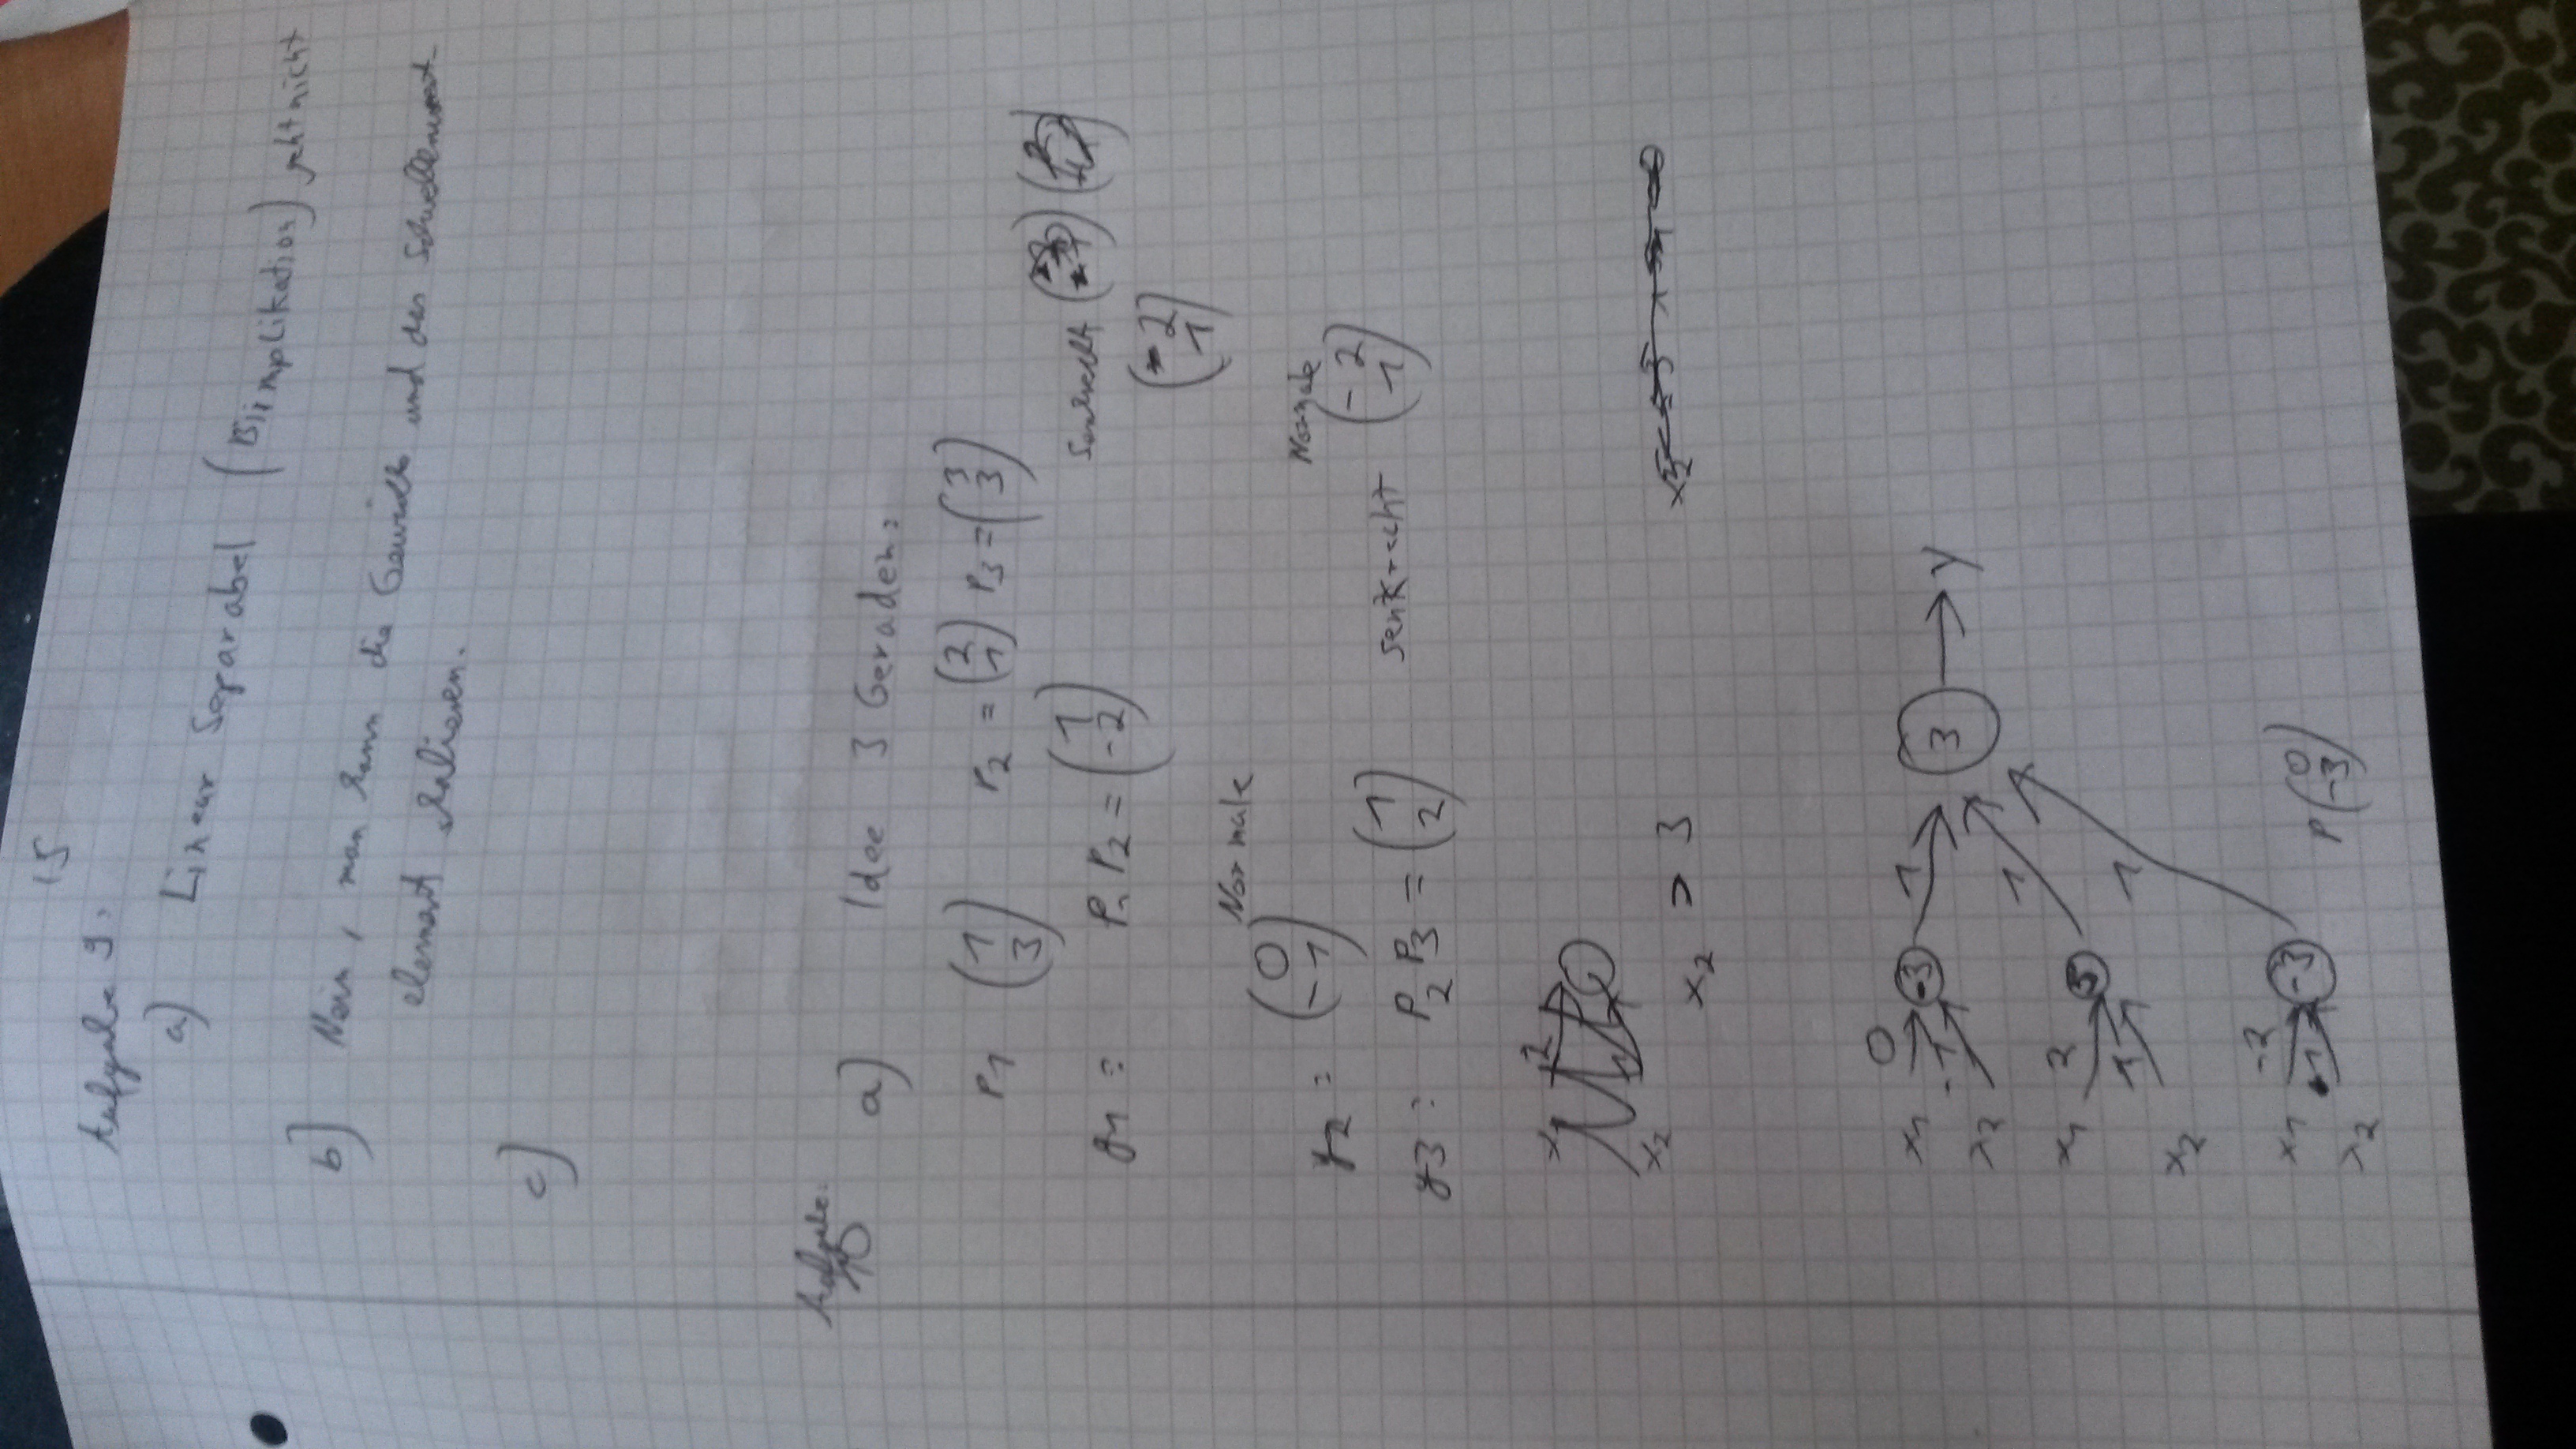 15
Aufgabe 9:
a) Linear Separabel (Biimplikation) geht nicht
b) Nein, man kann die Gewichte und das Schwellenwert-
element skalieren.
c)
Aufgabe
10 a) Idee 3 Geraden:
P1 (1 3) P2 = (2 1) P3 = (3 3)
g1 : P1 P2 = (1 -2) Senkrecht
(2 1)
Normale
g2 : (0 -1)
Normale
g3 : P2 P3 = (1 2) senkrecht (-2 1)
x2
x2 > 3
0
x1 -3 1
-1 3 → y
x2
1
x1 2
1 1
x2
-2
x1 -3
1 P (0 -3)
x2